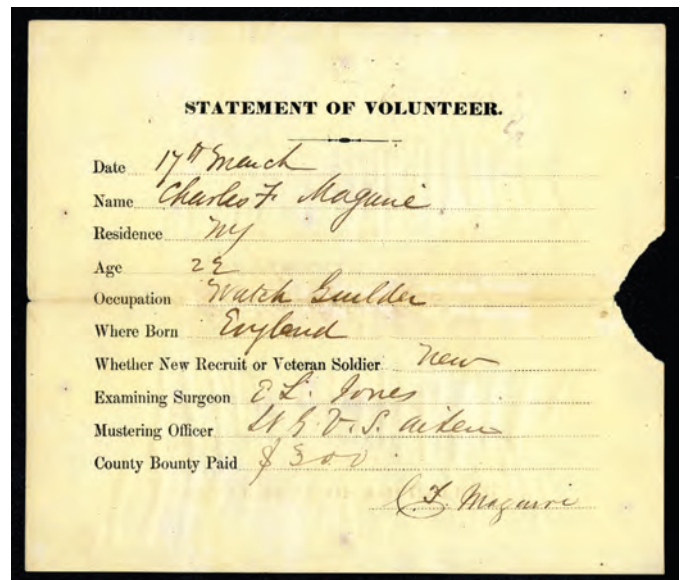 STATEMENT OF VOLUNTEER.
Date 17th March
Name Charles F. Maguire
Residence NY
Age 22
Occupation Watch Guilder
Where Born England
Whether New Recruit or Veteran Soldier New
Examining Surgeon E L. Jones
Mustering Officer Lt G. V. S. Aiten
County Bounty Paid $300
C. F. Maguire